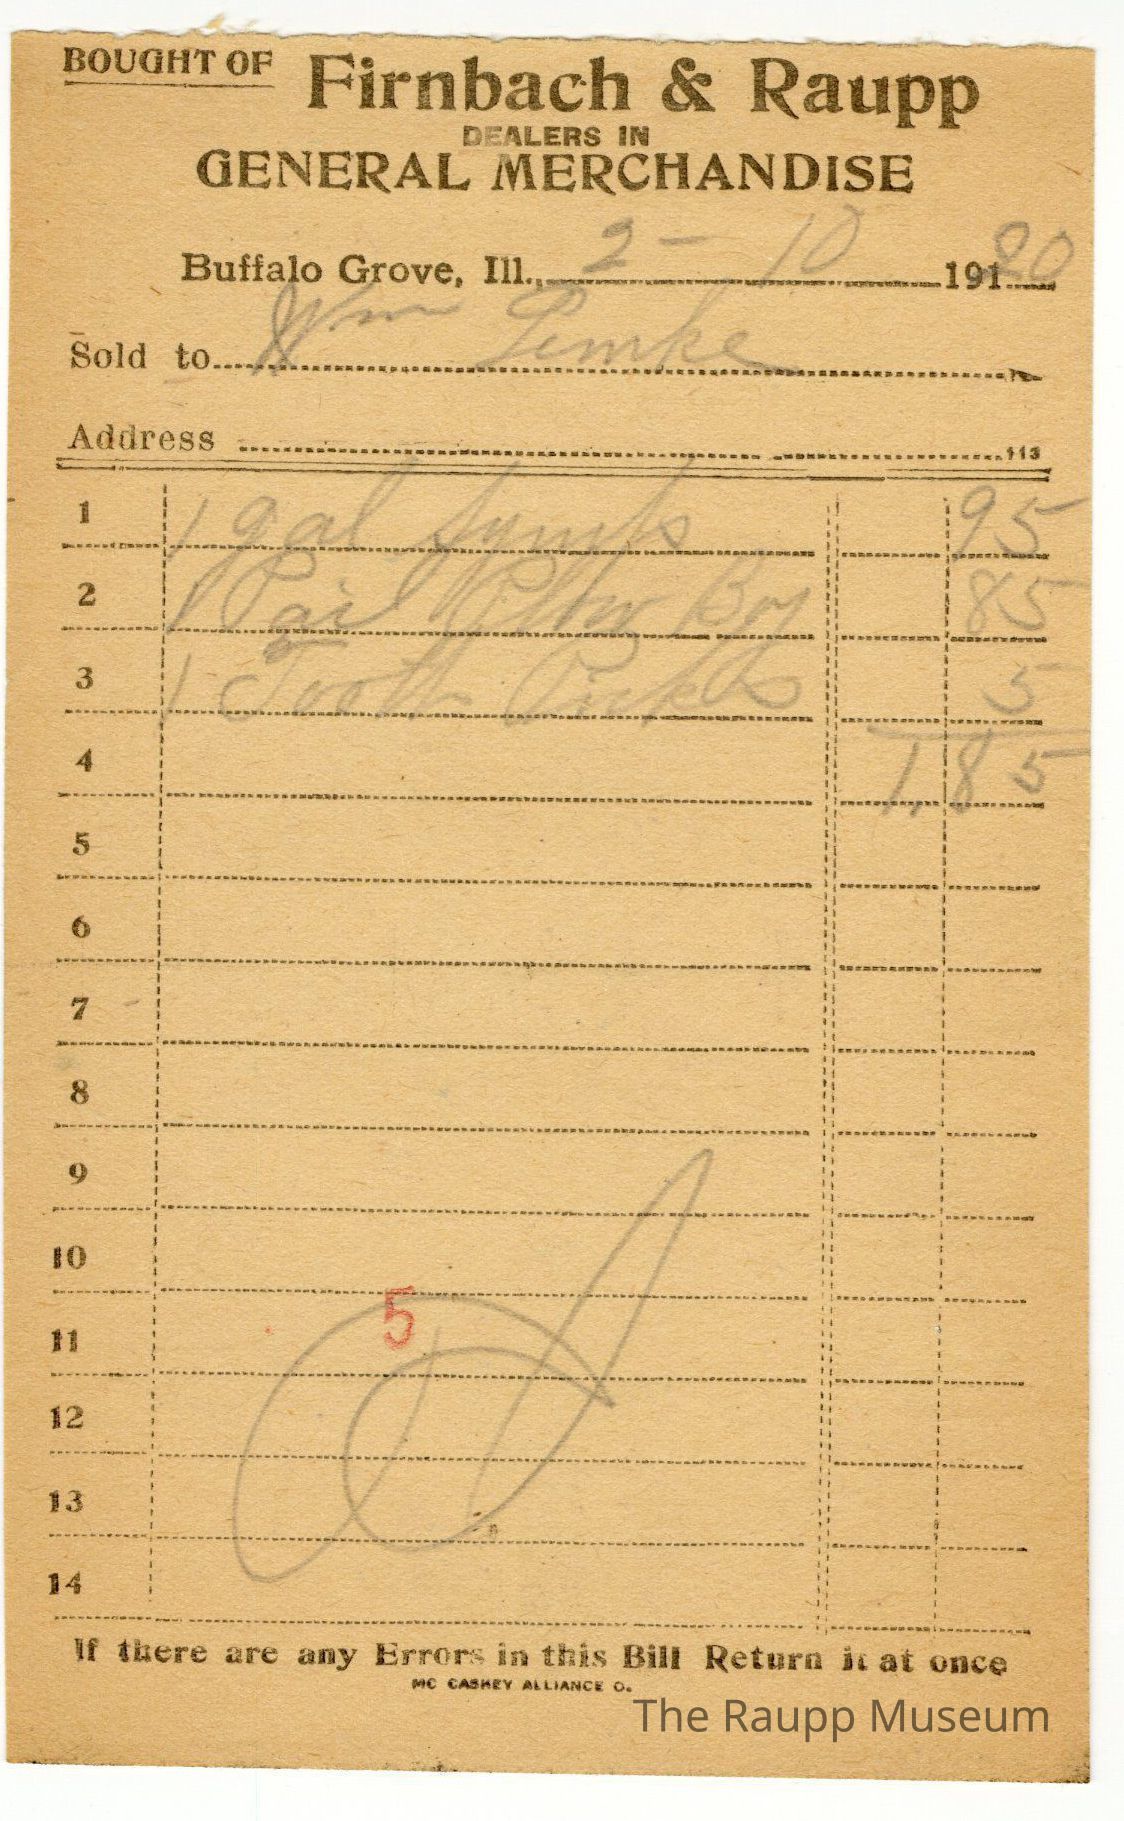 BOUGHT OF Firnbach & Raupp
DEALERS IN
GENERAL MERCHANDISE
Buffalo Grove, Ill., 2 - 10 191 20
Sold to Wm Lemke
Address 113
1 1 gal Syrup 95
2 1 Pail Boy 85
3 1 Tooth Picks 5
4 1.85
5
6
7
8
9
10
5
11
12
13
14
If there are any Errors in this Bill Return it at once
MC CASKEY ALLIANCE O.
The Raupp Museum